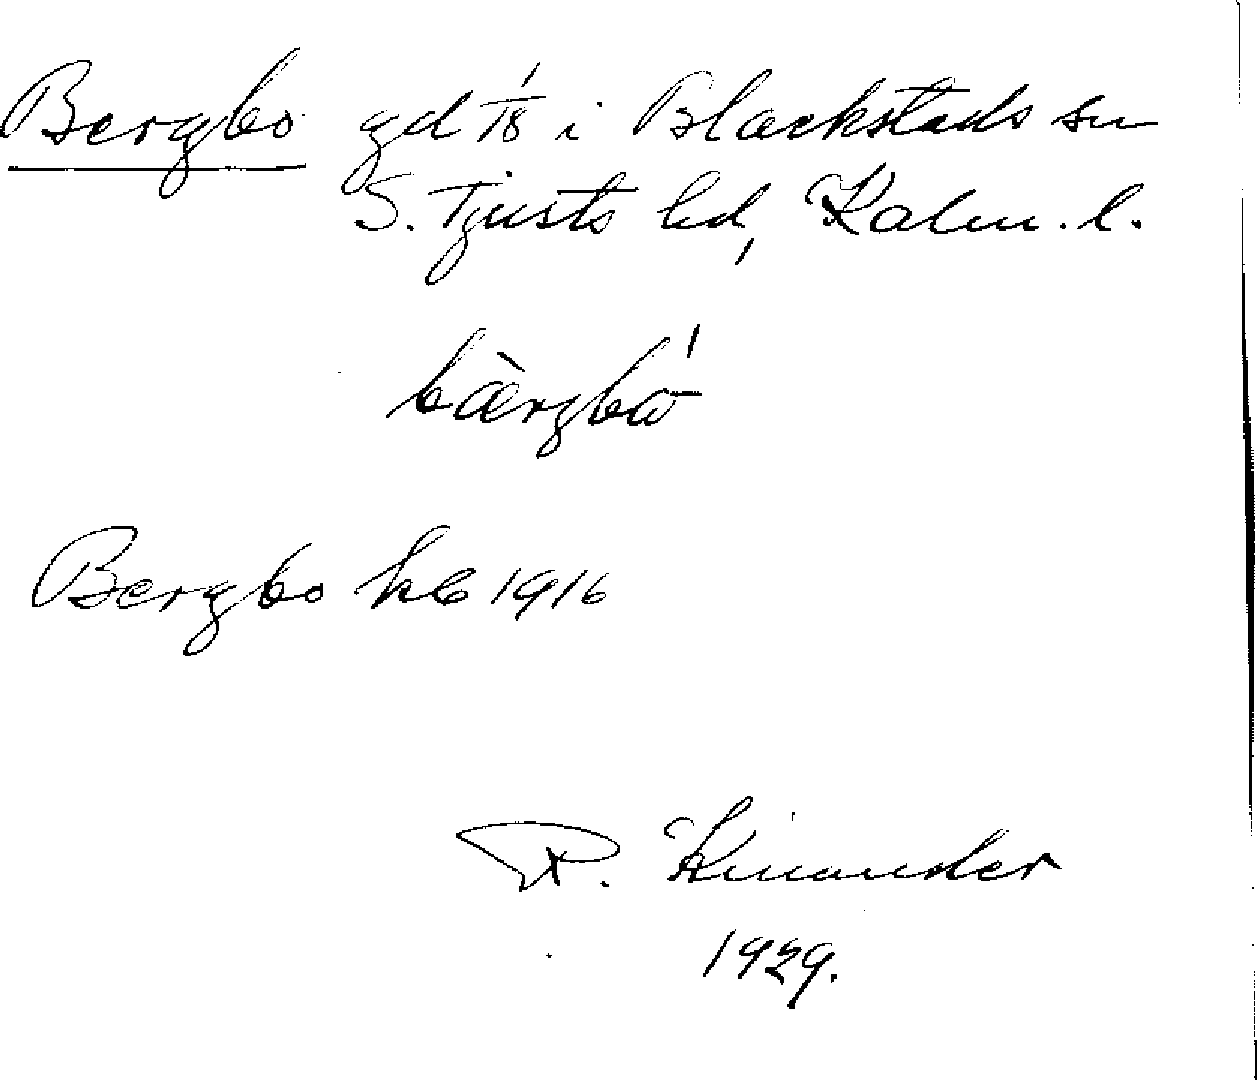 Bergbo gd 1/8 i Blackstads sn
S. Tjusts hd, Kalm. l.
bærgbo
Bergbo hb 1916
R. Kinander
1929.